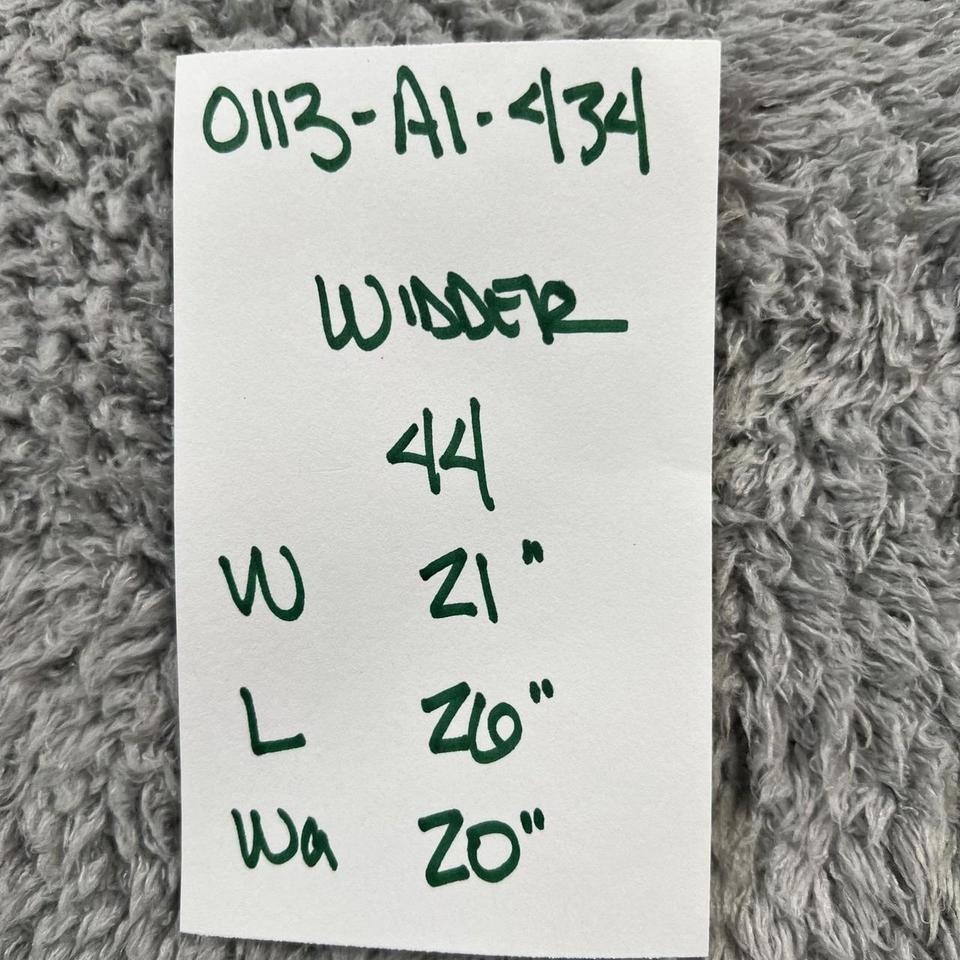 0113-A1-434
WIDDER
44
W 21"
L 26"
Wa 20"